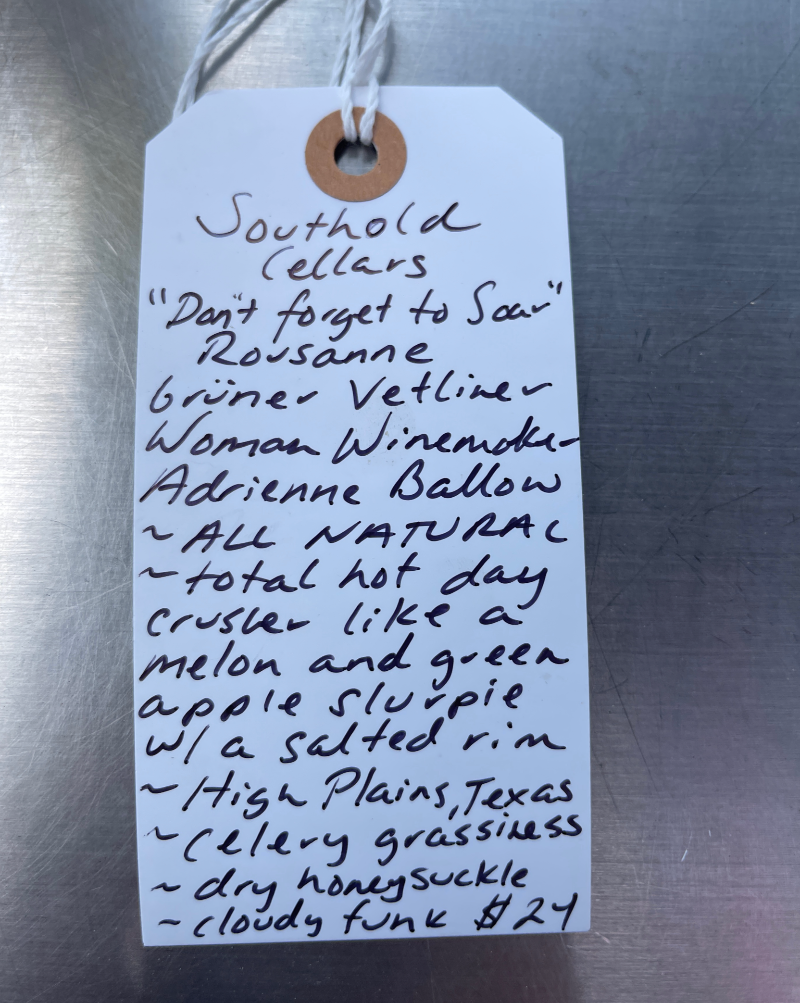 Southold
Cellars
"Don't forget to Soar"
Rousanne
Grüner Vetliner
Woman Winemaker
Adrienne Ballow
~ ALL NATURAL
~ total hot day
crusher like a
melon and green
apple slurpie
w/ a salted rim
~ High Plains, Texas
~ celery grassiness
~ dry honeysuckle
~ cloudy funk $24